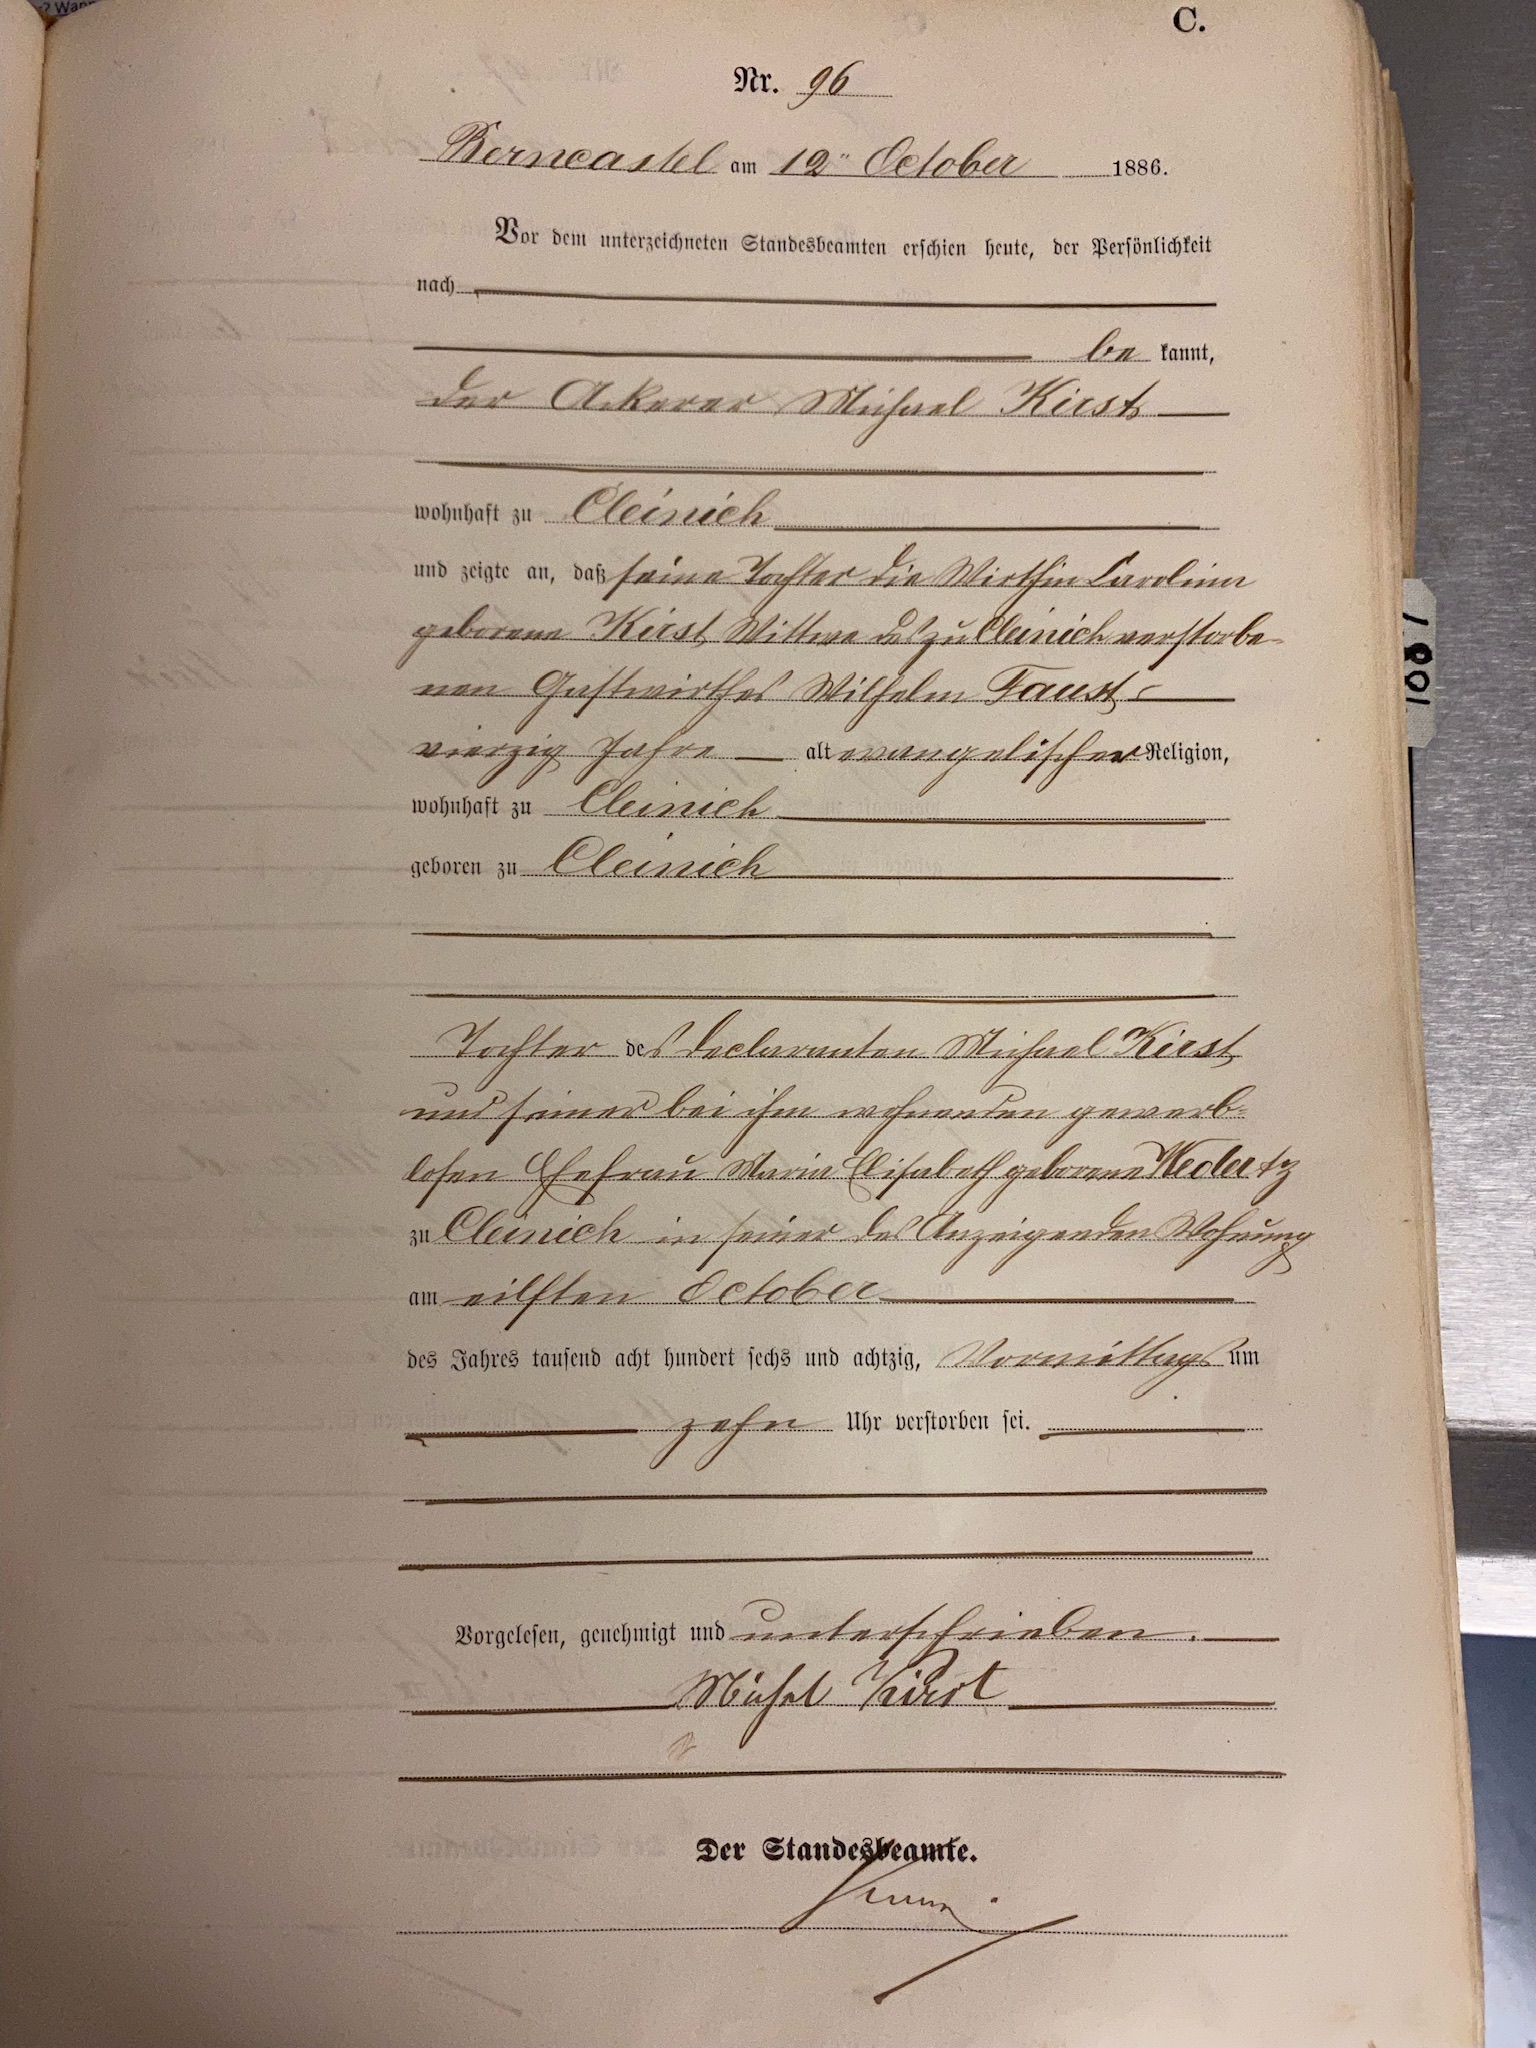 C.
Nr. 96
Berncastel am 12ten October 1886.
Vor dem unterzeichneten Standesbeamten erschien heute, der Persönlichkeit
nach
be kannt,
der Ackerer Michael Kirst
wohnhaft zu Cleinich
und zeigte an, daß seine Tochter die Wirthin Carolina
geborene Kirst Wittwe des zu Cleinich verstorbe-
nen Gastwirthes Wilhelm Faust
vierzig Jahre alt evangelischer Religion,
wohnhaft zu Cleinich
geboren zu Cleinich
Tochter des Declaranten Michael Kirst
und seiner bei ihm wohnenden gewerb-
losen Ehefrau Maria Elisabeth geborene
zu Cleinich in seiner des Anzeigenden Wohnung
am eilften October
des Jahres tausend acht hundert sechs und achtzig, Vormittags um
zehn Uhr verstorben sei.
Vorgelesen, genehmigt und unterschrieben.
Michel Kirst
Der Standesbeamte.
1887